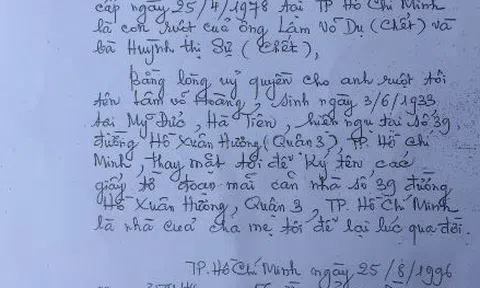 cấp ngày 25/4/1978 tại TP Hồ Chí Minh
là con ruột của ông Lâm Võ Dụ (chết) và
bà Huỳnh thị Sử (chết),
bằng lòng uỷ quyền cho anh ruột tôi
tên Lâm võ Hoàng, sinh ngày 3/6/1933
tại Mỹ Đức, Hà Tiên, hiện ngụ tại số 39
đường Hồ Xuân Hương (Quận 3), TP. Hồ Chí
Minh, thay mặt tôi để ký tên các
giấy tờ đoạn mãi căn nhà số 39 đường
Hồ Xuân Hương, Quận 3, TP. Hồ Chí Minh
là nhà của cha mẹ tôi để lại lúc qua đời.
TP. Hồ Chí Minh ngày 25/8/1996